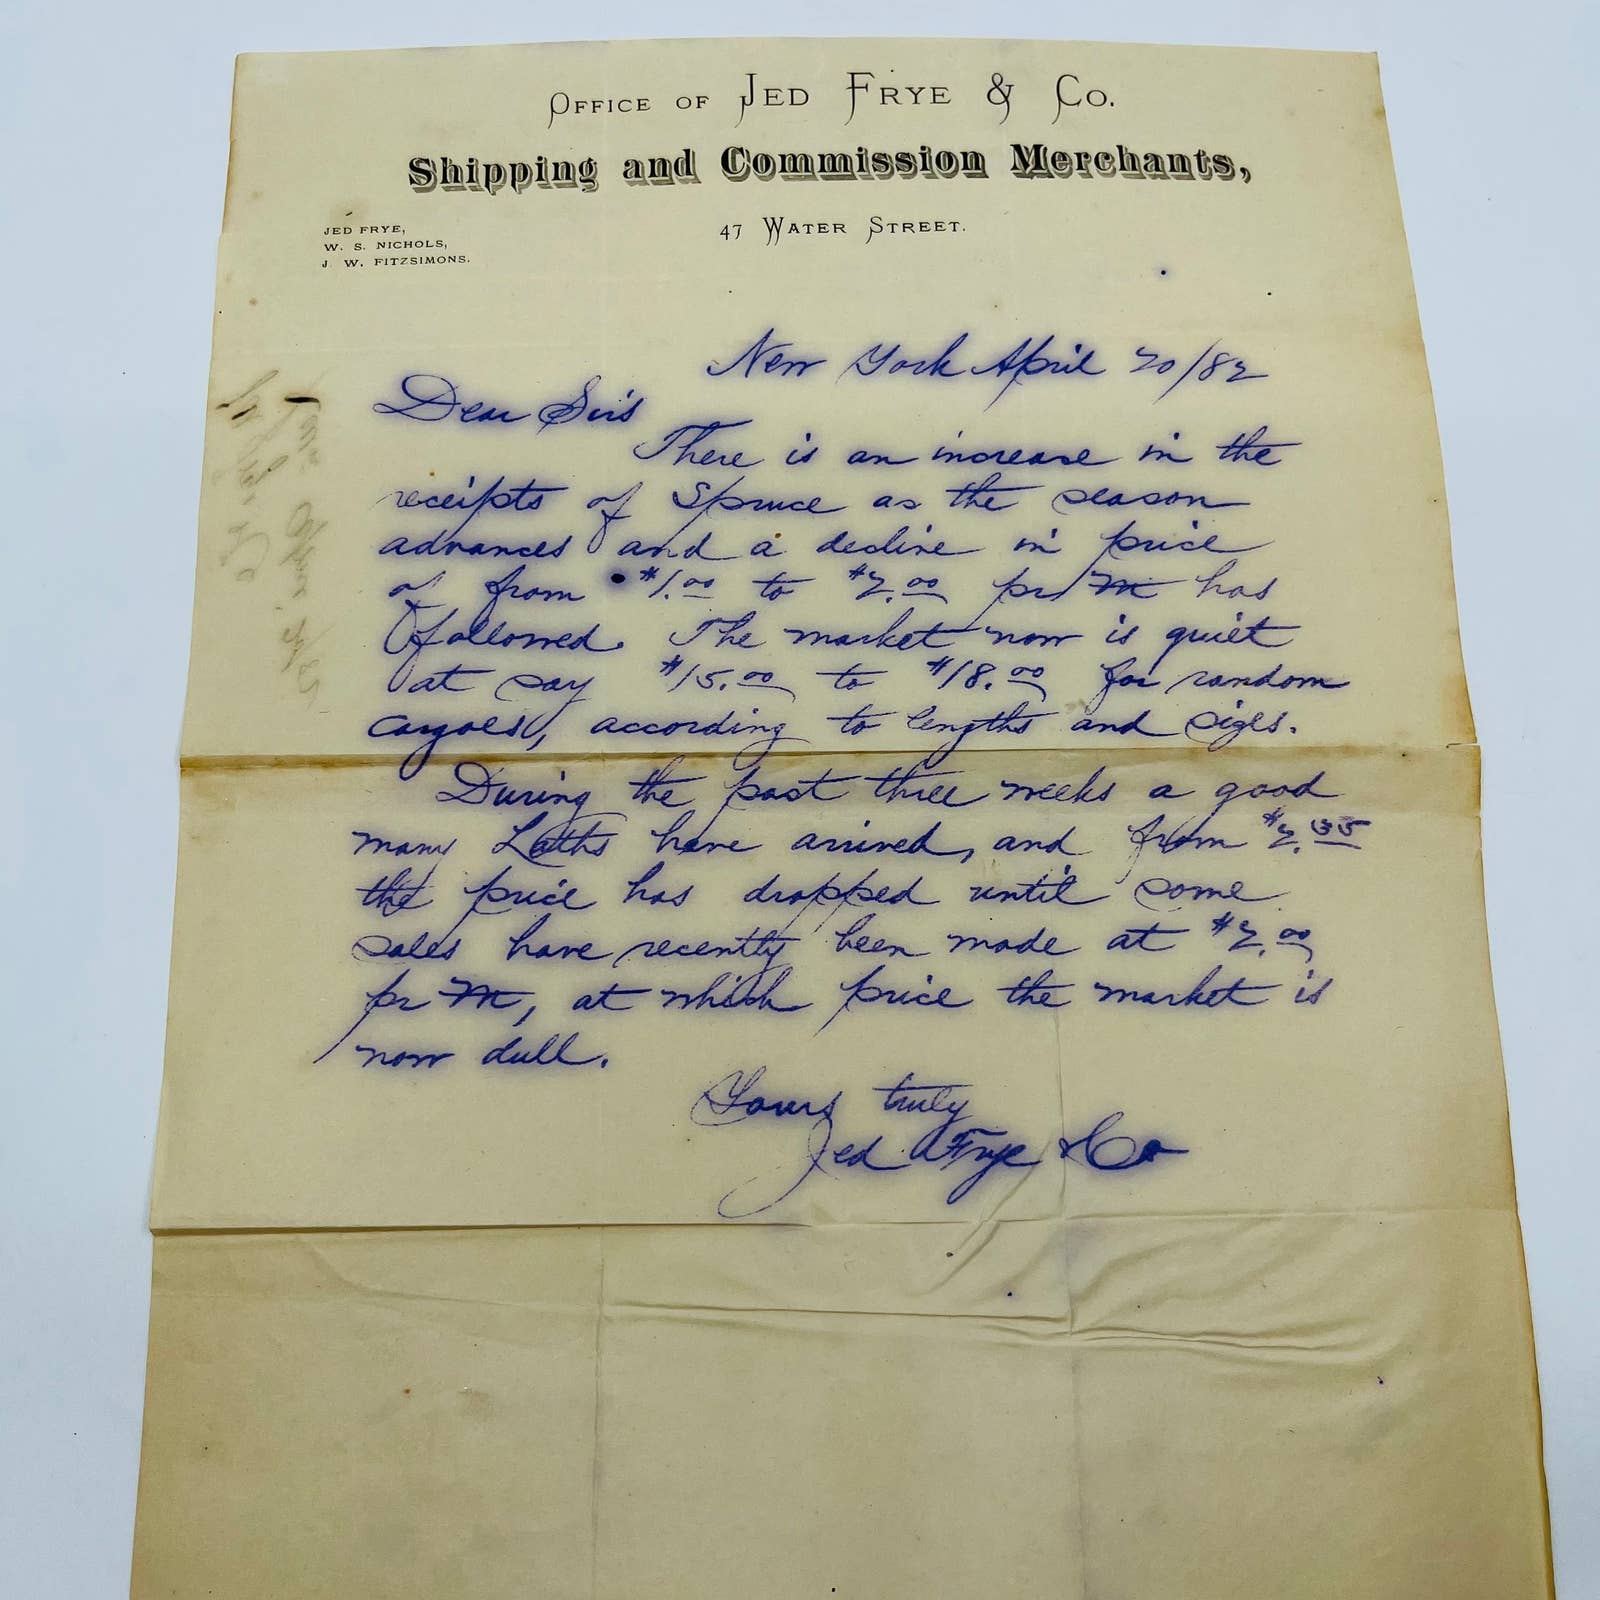 OFFICE OF JED FRYE & CO.
Shipping and Commission Merchants,
47 WATER STREET.
JED FRYE,
W. S. NICHOLS,
J. W. FITZSIMONS.
New York April 20/82
Dear Sirs
There is an increase in the
receipts of Spruce as the season
advances and a decline in price
of from $1.00 to $2.00 pr M has
followed. The market now is quiet
at say $15.00 to $18.00 for random
cargoes, according to lengths and sizes.
During the past three weeks a good
many Laths have arrived, and from $2.35
the price has dropped until some
sales have recently been made at $2.00
pr M, at which price the market is
now dull.
Yours truly
Jed Frye & Co